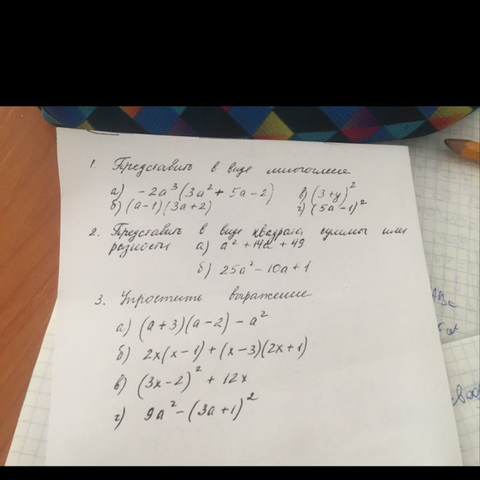 1. Представить в виде многочлена
а) -2a³(3a² + 5a - 2) в) (3+y)²
б) (a-1)(3a+2) г) (5a-1)²
2. Представить в виде квадрата суммы или
разности а) a² + 14a + 49
б) 25a² - 10a + 1
3. Упростить выражение
а) (a+3)(a-2) - a²
б) 2x(x-1) + (x-3)(2x+1)
в) (3x-2)² + 12x
г) 9a² - (3a+1)²